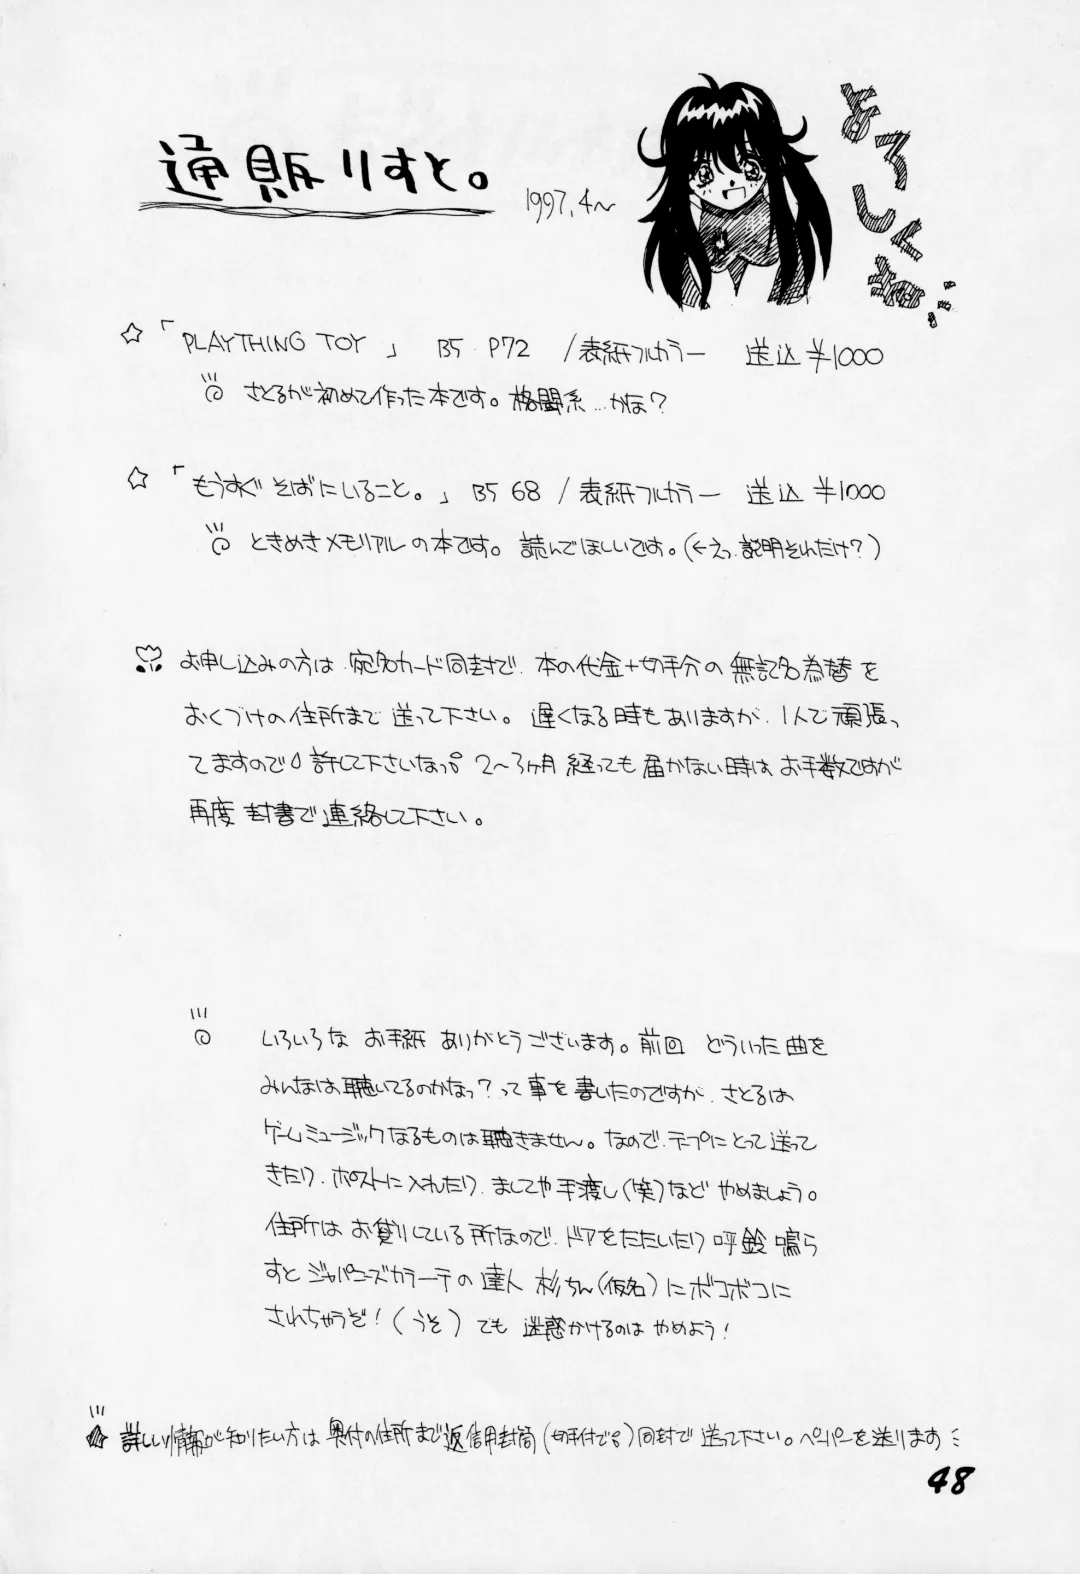 通販りすと。
1997.4〜
よろしくね
☆「PLAYTHING TOY」 B5 P72 /表紙フルカラー 送込¥1000
さとるが初めて作った本です。格闘系…かな?
☆「もうすぐそばにいること。」 B5 68 /表紙フルカラー 送込¥1000
ときめきメモリアルの本です。読んでほしいです。(←えっ、説明それだけ?)
お申し込みの方は、宛名カード同封で、本の代金+切手分の無記名為替を
おくづけの住所まで送って下さい。遅くなる時もありますが、1人で頑張っ
てますので許して下さいなっ。2〜3ヶ月経っても届かない時はお手数ですが
再度封書で連絡して下さい。
いろいろなお手紙ありがとうございます。前回どういった曲を
みんなは聴いてるのかなっ?って事を書いたのですが、さとるは
ゲームミュージックなるものは聴きません。なので、テープにとって送って
きたり、ポストに入れたり、ましてや手渡し(笑)などやめましょう。
住所はお貸りしている所なので、ドアをたたいたり呼鈴鳴ら
すとジャパニーズカラーテの達人杉ちん(仮名)にボコボコに
されちゃうぞ!(うそ)でも迷惑かけるのはやめよう!
詳しい情報が知りたい方は奥付の住所まで返信用封筒(切手付で)同封で送って下さい。ペーパーを送ります
48